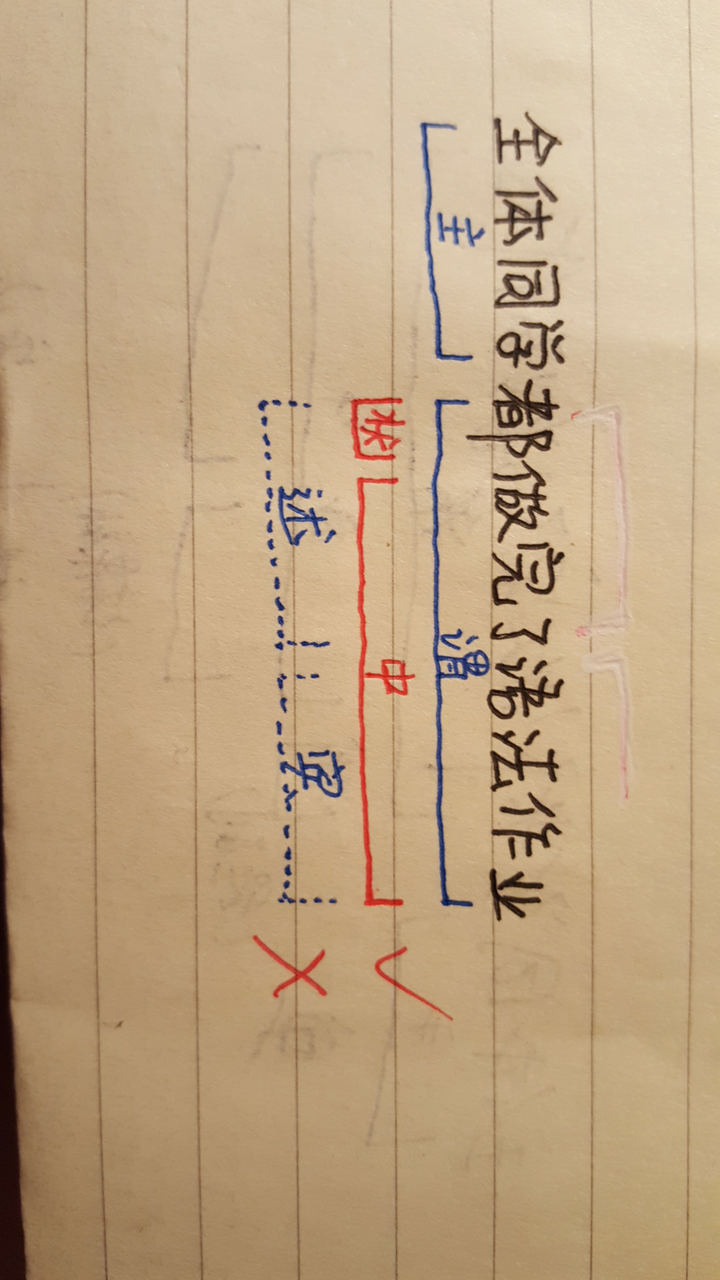 全体同学都做完了语法作业
主 谓
状 中
述 宾